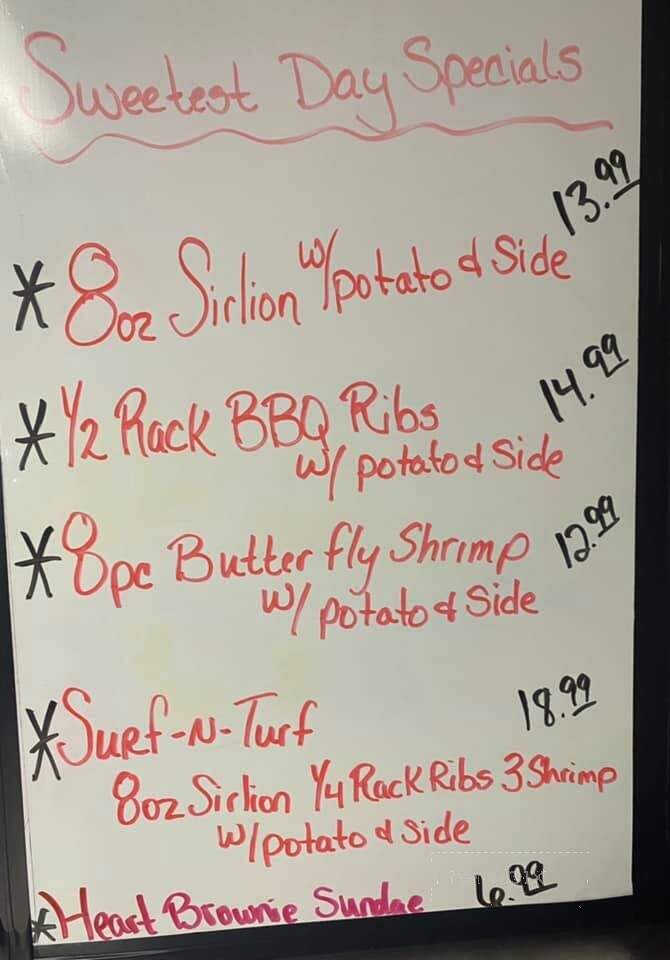 Sweetest Day Specials
13.99
* 8oz Sirlion w/potato & Side
14.99
* 1/2 Rack BBQ Ribs
w/ potato & Side
* 8pc Butterfly Shrimp 12.99
w/ potato & Side
18.99
* Surf-N-Turf
8oz Sirlion 1/4 Rack Ribs 3 Shrimp
w/potato & Side
* Heart Brownie Sundae 6.99